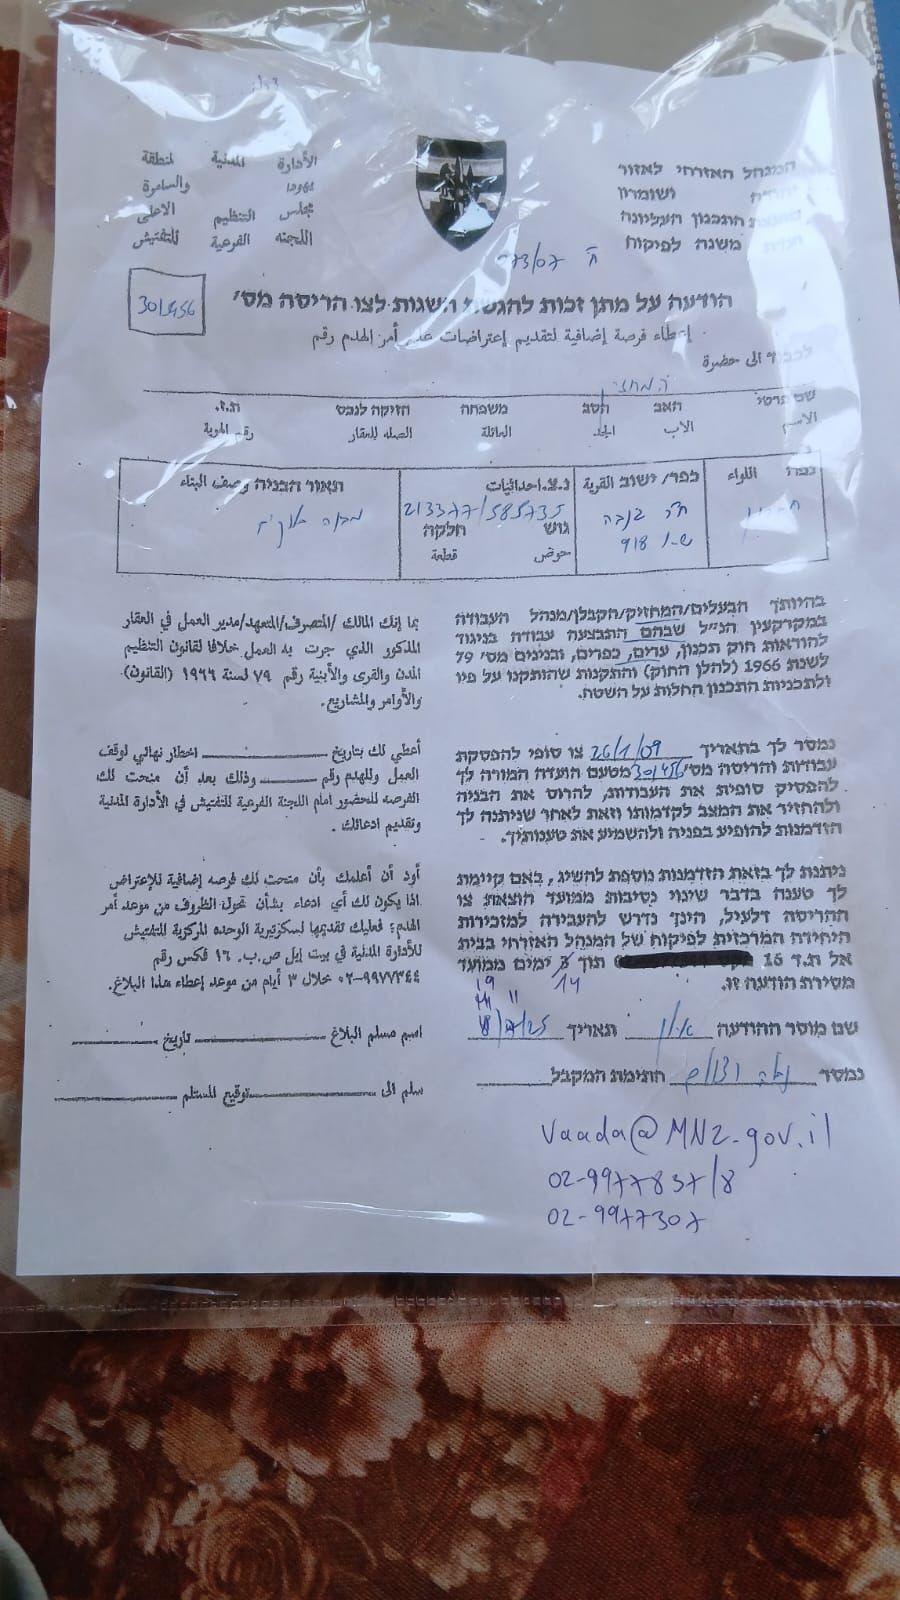 המנהל האזרחי לאזור
יהודה ושומרון
מועצת התכנון העליונה
ועדת משנה לפיקוח
الأدارة المدنية لمنطقة
يهودا والسامرة
مجلس التنظيم الاعلى
اللجنه الفرعية للتفتيش
ח 73/07
הודעה על מתן זכות להגשת השגות לצו הריסה מס׳
301456
إعطاء فرصة إضافية لتقديم إعتراضات على أمر الهدم رقم
לכבוד الى حضرة
המחזיק
שם פרטי האב הסב משפחה הזיקה לנכס ת.ז.
الاسم الاب الجد العائلة الصله للعقار رقم الهوية
נפה اللواء
כפר/ ישוב القرية
ח׳ ג׳נבה
918
נ.צ. احداثيات
213377/585735
גוש חלקה
حوض قطعة
תאור הבניה وصف البناء
מבנה
בהיותך הבעלים/המחזיק/הקבלן/מנהל העבודה
במקרקעין הנ״ל שבהם התבצעה עבודה בניגוד
להוראות חוק תכנון, ערים, כפרים, ובנינים מס׳ 79
לשנת 1966 (להלן החוק) והתקנות שהותקנו על פיו
ולתכניות התכנון החלות על השטח.
بما إنك المالك /المتصرف/المتعهد/مدير العمل في العقار
المذكور الذي جرت به العمل خلافا لقانون التنظيم
المدن والقرى والأبنية رقم ٧٩ لسنة ١٩٦٦ (القانون)
والأوامر والمشاريع.
נמסר לך בתאריך 26/1/09 צו סופי להפסקת
עבודות והריסה מס׳ 301456 מטעם הועדה המורה לך
להפסיק סופית את העבודות, להרוס את הבניה
ולהחזיר את המצב לקדמותו וזאת לאחר שניתנה לך
הזדמנות להופיע בפניה ולהשמיע את טענותיך.
أعطي لك بتاريخ ـــــــ اخطار نهائي لوقف
العمل وللهدم رقم ـــــــ وذلك بعد أن منحت لك
الفرصه للحضور امام اللجنة الفرعية للتفتيش في الأدارة المدنية
وتقديم ادعائك .
ניתנת לך בזאת הזדמנות נוספת להשיג , באם קיימת
לך טענה בדבר שינוי נסיבות ממועד הוצאת צו
ההריסה דלעיל, הינך נדרש להעבירה למזכירות
היחידה המרכזית לפיקוח של המנהל האזרחי בבית
אל ת.ד 16 תוך 3 ימים ממועד
14
מסירת הודעה זו.
أود أن أعلمك بأن منحت لك فرصه إضافية للإعتراض
اذا يكون لك أي ادعاء بشأن تحول الظروف من موعد أمر
الهدم؛ فعليك تقديمها لسكرتيرية الوحده المركزية للتفتيش
للأدارة المدنية في بيت إيل ص.ب. ١٦ فكس رقم
٠٢-٩٩٧٧٣٤٤ خلال ٣ أيام من موعد إعطاء هذا البلاغ.
שם מוסר ההודעה תאריך
נמסר חתימת המקבל
اسم مسلم البلاغ ـــــــ تاريخ ـــــــ
سلم الى ـــــــ توقيع المستلم ـــــــ
vaada@MNZ.gov.il
02-9977837/8
02-9977307